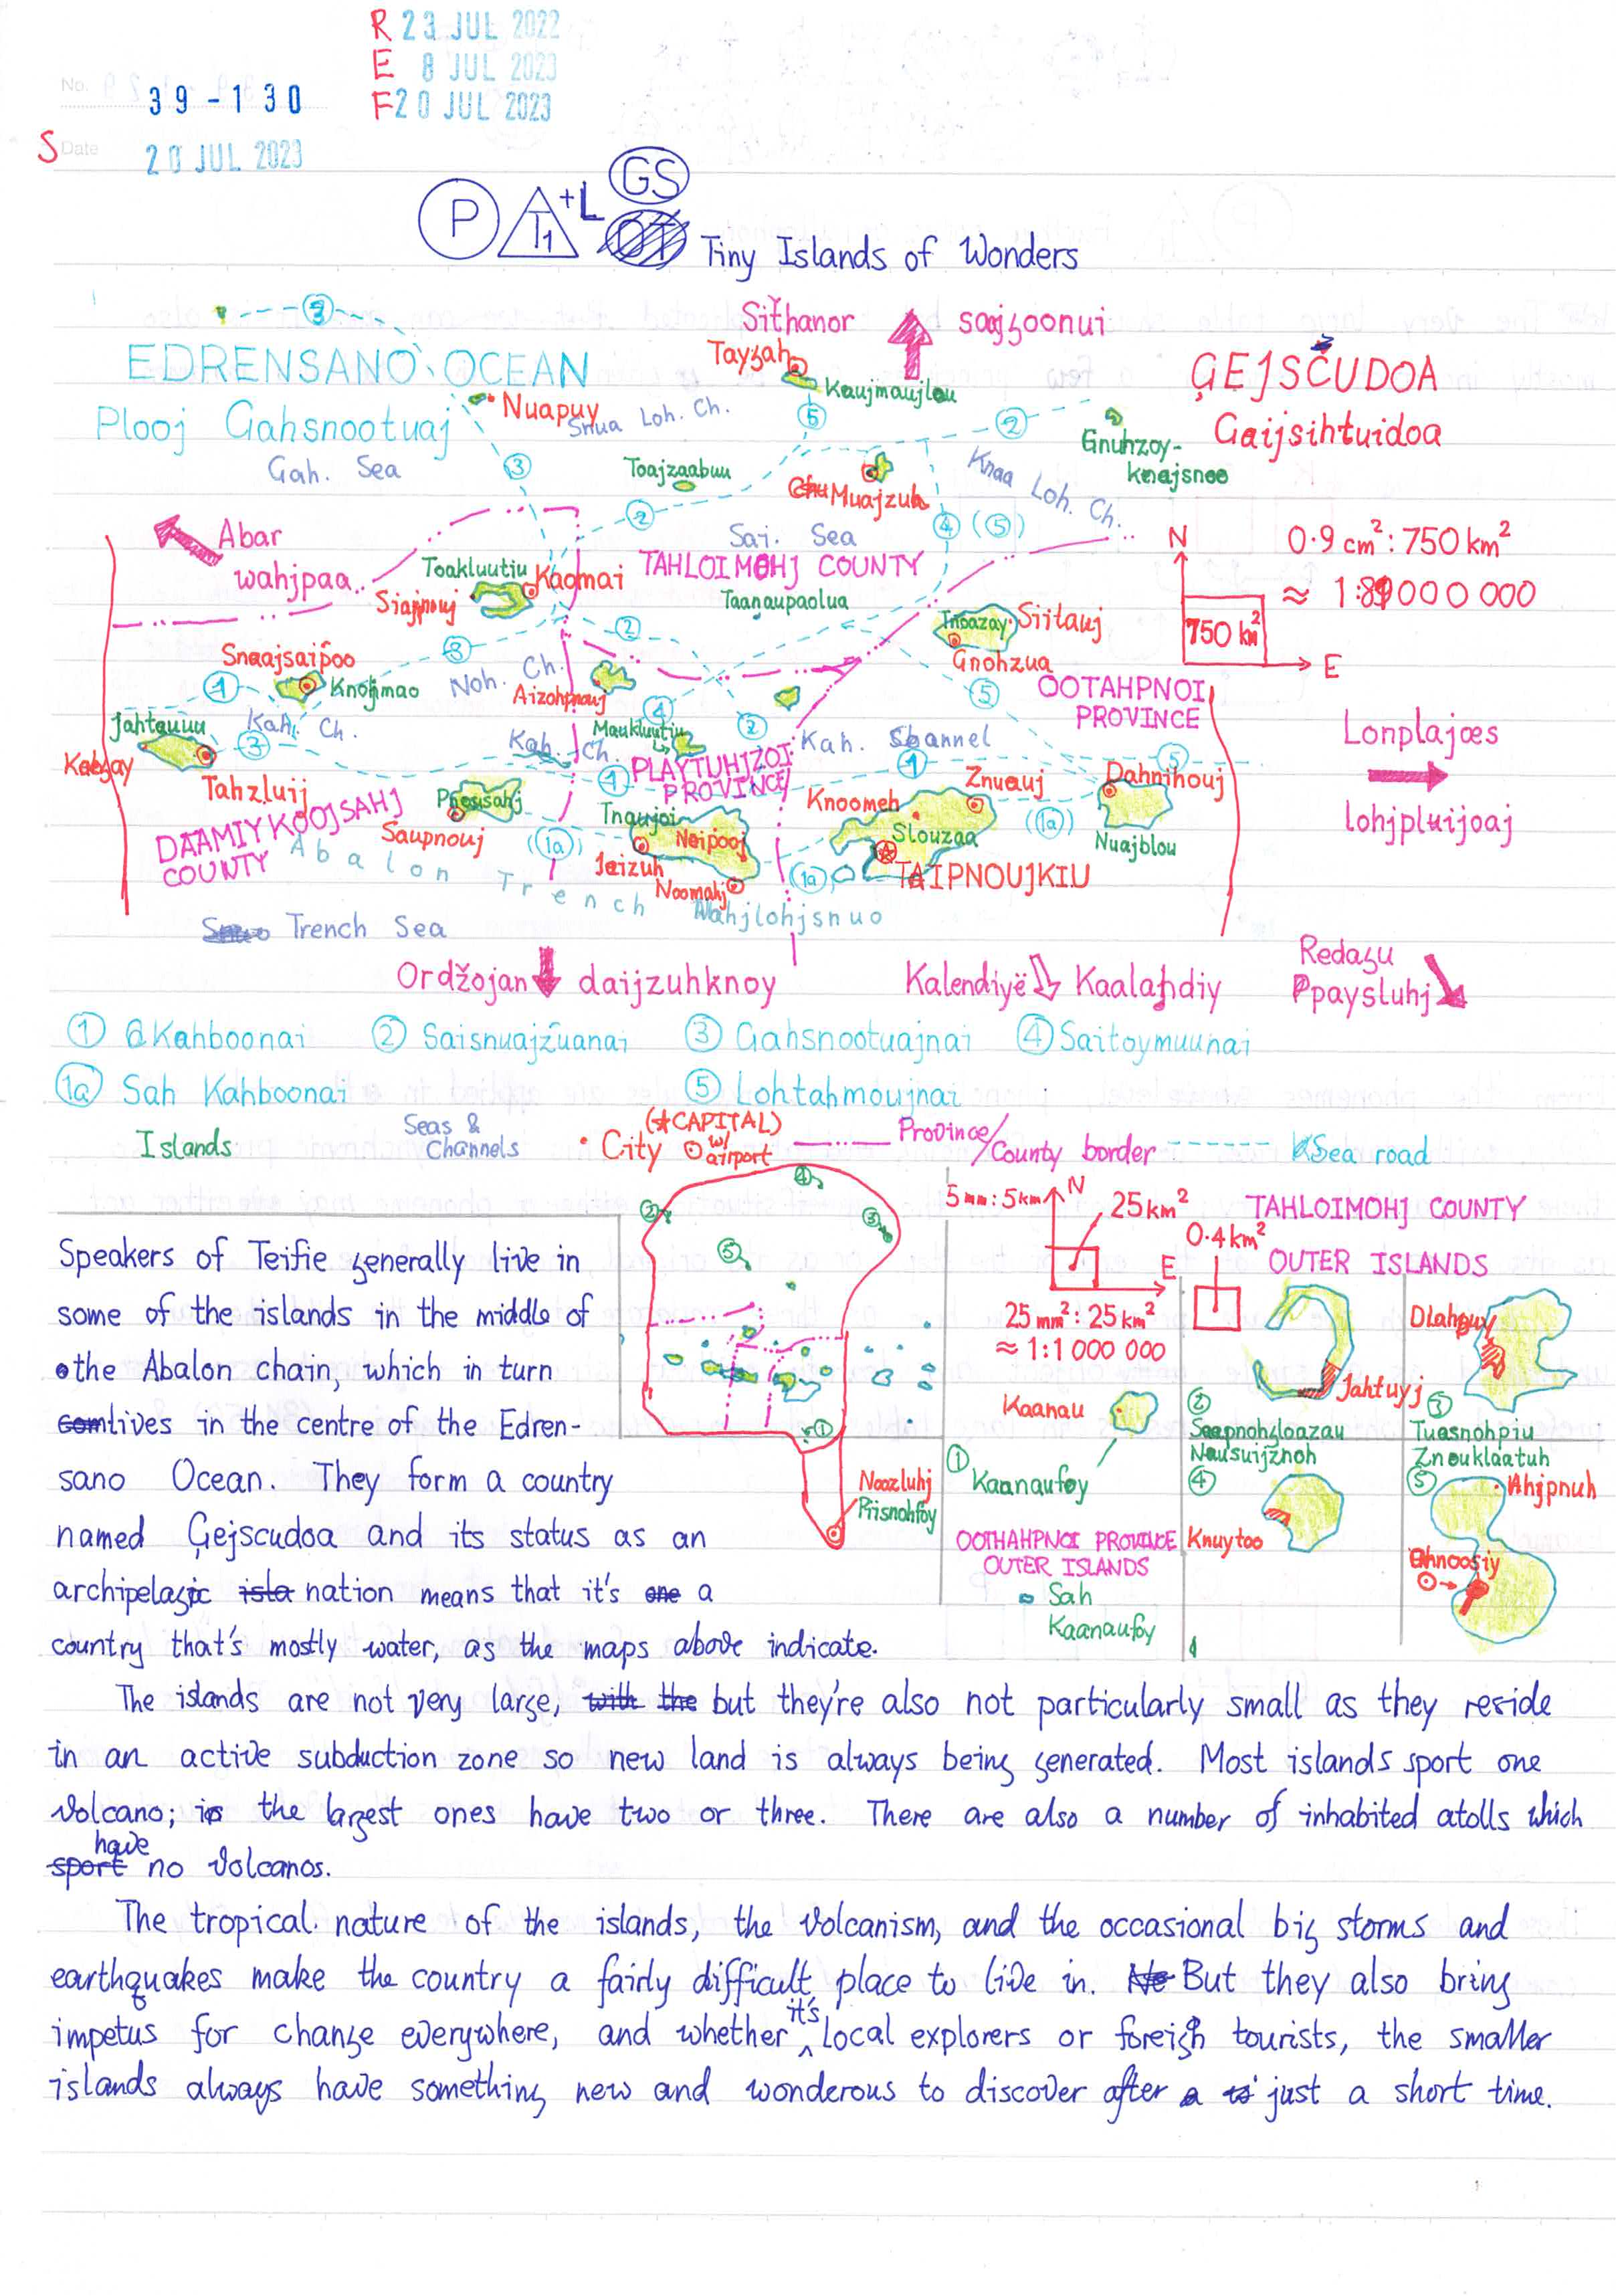 R 23 JUL 2022
E 8 JUL 2023
F 20 JUL 2023
No. 39-130
S Date 20 JUL 2023
P T1 +L GS
Tiny Islands of Wonders
3
Siťhanor saajzoonui
EDRENSANO OCEAN
Tayzah
Kaujmaujlou
ĢEJSČUDOA
Plooj Gahsnootuaj
Nuapuy
Snua Loh. Ch.
5
2
Gaijsihtuidoa
Gah. Sea
3
Toajzaabuu
Muajzuh
Knaa Loh. Ch.
Gnuhzoy-
knajsnoo
Abar
wahjpaa
2
Sai. Sea
4 (5)
N
0.9 cm²: 750 km²
Toakluutiu
Kaomai
TAHLOIMOHJ COUNTY
Siajpnouj
Taanaupaolua
Tnoazay
Siitauj
750 km²
Gnohzua
E
Snaajsaipoo
3
2
Noh. Ch.
1
Knohmao
Aizohpnouj
4
2
5
OOTAHPNOI
PROVINCE
Jahtauuu
Kah. Ch.
3
Maukluutiu
Kah. Ch.
1
PLAYTUHJZOI
PROVINCE
Kah. Channel
1
5
Lonplajœs
Tahzluij
Knoomeh
Znuauj
Dahnihouj
DAAMIYKOOJSAHJ
COUNTY
Saupnouj
(1a)
Tnaujoi
Naipooj
Jeizuh
Noomahj
Slouzaa
(1a)
Nuajblou
lohjpluijoaj
Abalon Trench
1a
TAIPNOUJKIU
Wahjlohjsnuo
Trench Sea
Ordžojan daijzuhknoy
Kalendiyë Kaalahdiy
Redazu
Ppaysluhj
1 Kahboonai
2 Saisnuajzuanai
3 Gahsnootuajnai
4 Saitoymuunai
1a Sah Kahboonai
5 Lohtahmoujnai
Islands
Seas &
Channels
(★CAPITAL)
City w/ airport
Province/
County border
Sea road
5 mm: 5 km
N
25 km²
E
25 mm²: 25 km²
≈ 1:1 000 000
0.4 km²
TAHLOIMOHJ COUNTY
OUTER ISLANDS
2
4
3
5
1
Noozluhj
Prisnohfoy
Kaanau
1
Kaanaufoy
OOTHAHPNOI PROVINCE
OUTER ISLANDS
Sah
Kaanaufoy
Jahtuyj
2
Nausuijznoh
4
Knuytoo
Dlahpuy
3
Tuasnohpiu
Znouklaatuh
5
Ahjpnuh
Ohnoosiy
Speakers of Teifie generally live in
some of the islands in the middle of
the Abalon chain, which in turn
lives in the centre of the Edren-
sano Ocean. They form a country
named Ģejscudoa and its status as an
archipelagic nation means that it's a
country that's mostly water, as the maps above indicate.
The islands are not very large, but they're also not particularly small as they reside
in an active subduction zone so new land is always being generated. Most islands sport one
volcano; the largest ones have two or three. There are also a number of inhabited atolls which
have no volcanos.
The tropical nature of the islands, the volcanism, and the occasional big storms and
earthquakes make the country a fairly difficult place to live in. But they also bring
impetus for change everywhere, and whether it's local explorers or foreign tourists, the smaller
islands always have something new and wonderous to discover after just a short time.